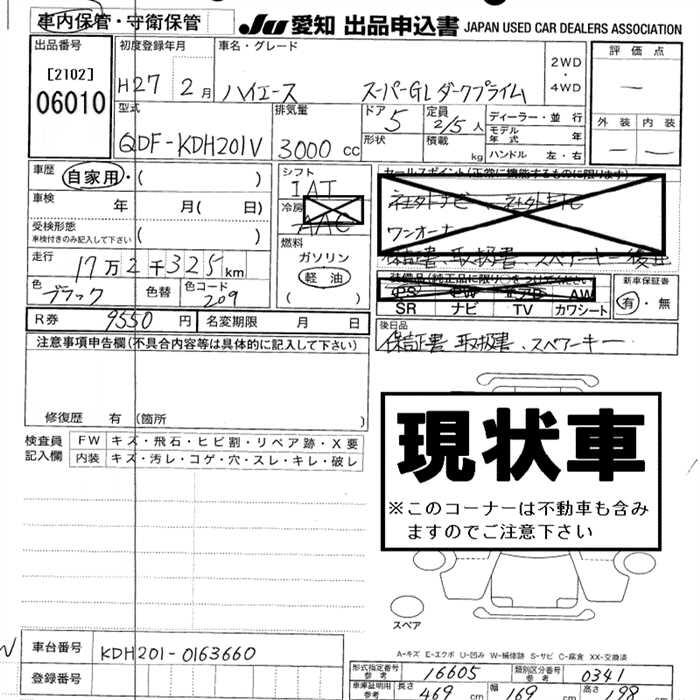 車内保管・守衛保管
JU 愛知 出品申込書 JAPAN USED CAR DEALERS ASSOCIATION
出品番号
[2102]
06010
初度登録年月
H27 2月
車名・グレード
ハイエース スーパーGL ダークプライム
2WD
・
4WD
評価点
―
外装 内装
― ―
型式
QDF-KDH201V
排気量
3000 cc
ドア
5
形状
定員
2/5人
積載
kg
ディーラー・並行
モデル年式 年
ハンドル 左・右
車歴
自家用・( )
車検 年 月( 日)
受検形態
車検付きのみ記入して下さい ( )
走行
17万2千325km
色
ブラック
色替
色コード
209
シフト
IAT
冷房
AAC
燃料
ガソリン
軽油
( )
セールスポイント(正常に機能するものに限ります)
ワンオーナー
保証書、取扱書、スペアーキー後日
装備品(純正品に限り○をつけてください
PS PW エアB AW
SR ナビ TV カワシート
新車保証書
有・無
R券 9550円 名変期限 月 日
後日品
保証書 取扱書、スペアーキー
注意事項申告欄(不具合内容等は具体的に記入して下さい)
修復歴 有 (箇所 )
検査員記入欄
FW キズ・飛石・ヒビ割・リペア跡・X要
内装 キズ・汚レ・コゲ・穴・スレ・キレ・破レ
現状車
※このコーナーは不動車も含み
ますのでご注意下さい
スペア
A-キズ E-エクボ U-凹み W-補修跡 S-サビ C-腐食 XX-交換済
車台番号 KDH201-0163660
登録番号
形式指定番号
参考
16605
類別区分番号
参考
0341
車庫証明用
参考
長さ 469cm 幅 169cm 高さ 198cm